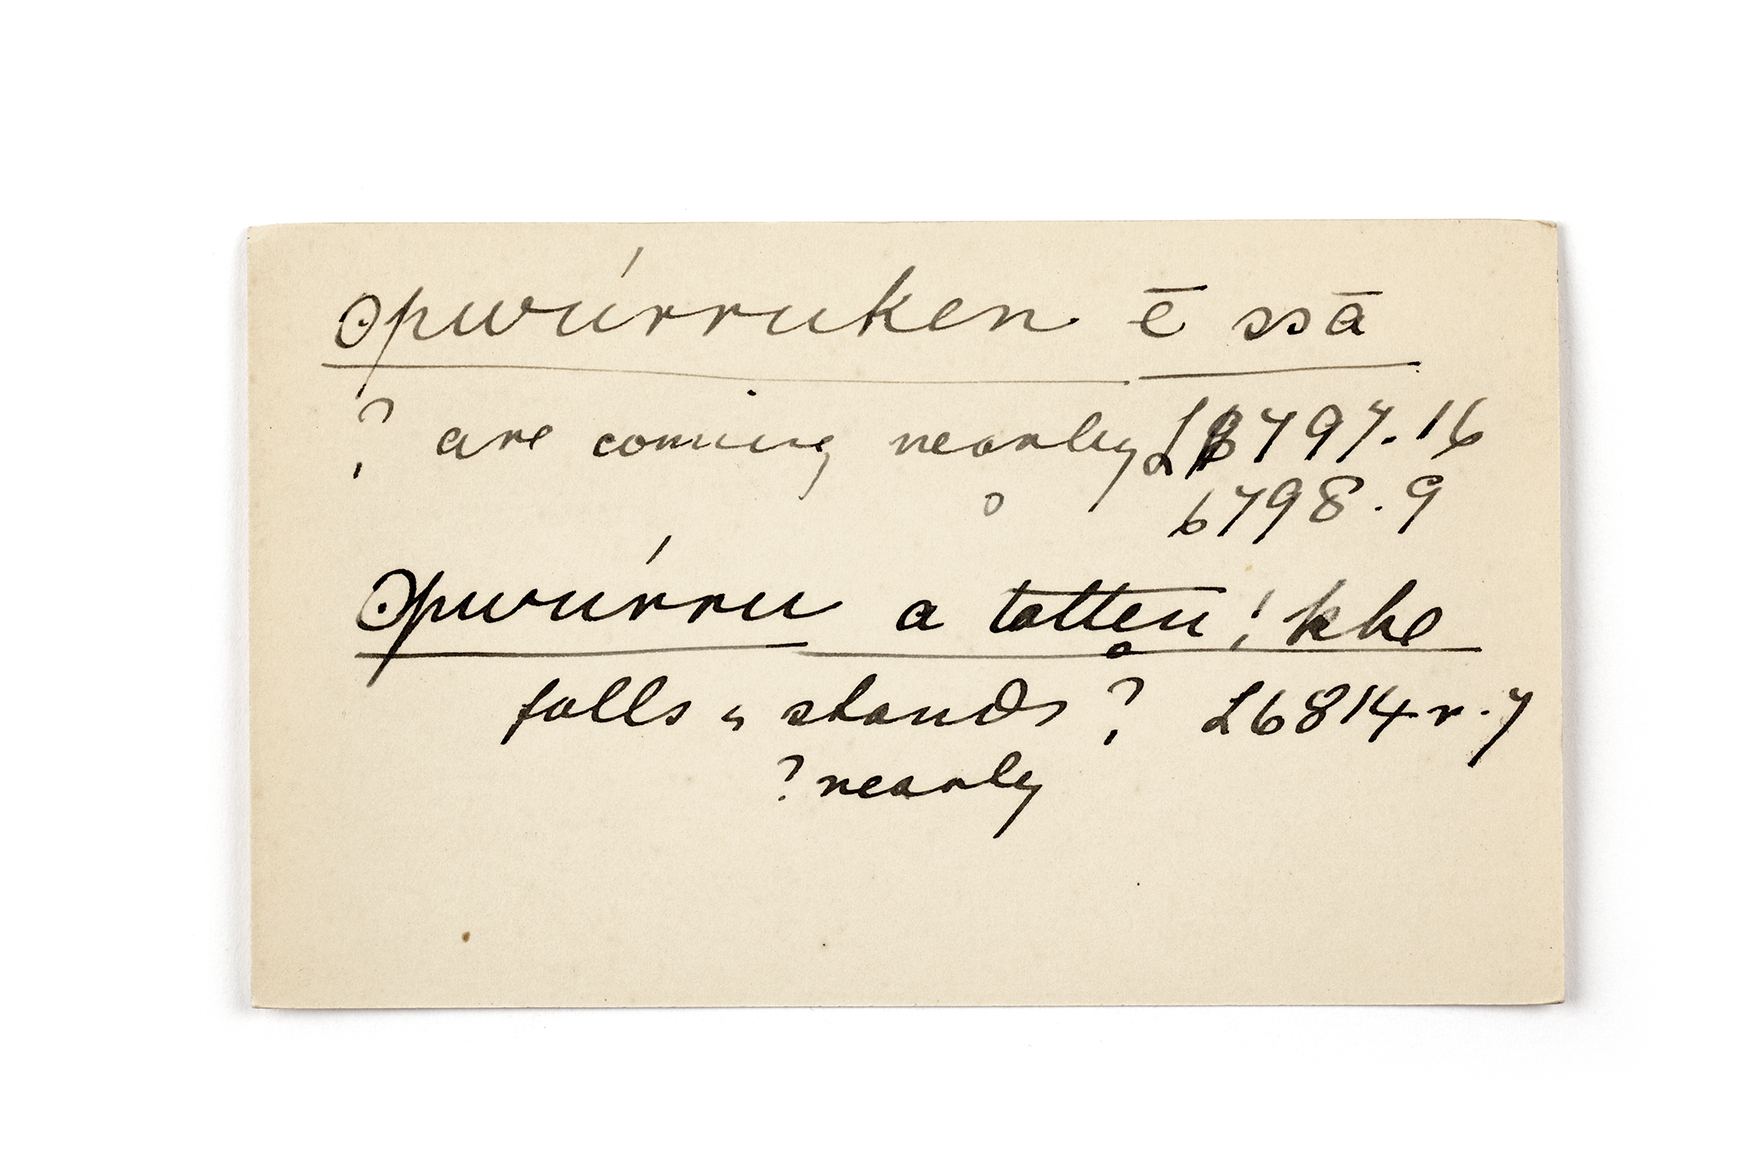 ʘpwúrruken ē ssā
? are coming nearly L 6797.16
6798.9
ʘpwúrru a tatten ! khe
falls & stands ? L 6814 r.7
? nearly